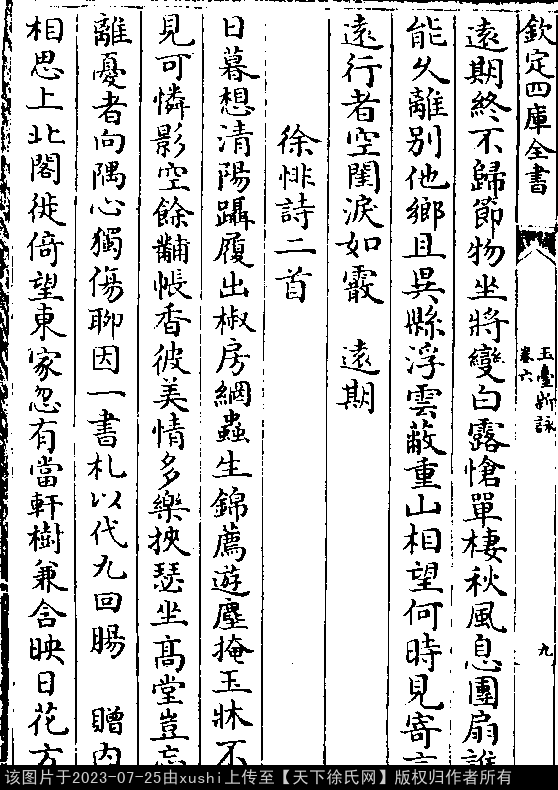 欽定四庫全書
玉臺新詠
卷六
九
遠期終不歸節物坐將變白露愴單棲秋風息團扇誰
能久離別他鄉且異縣浮雲蔽重山相望何時見寄言
遠行者空閨淚如霰　遠期
徐悱詩二首
日暮想清陽躡履出椒房網蟲生錦薦遊塵掩玉牀不
見可憐影空餘黼帳香彼美情多樂挾瑟坐髙堂豈忘
離憂者向隅心獨傷聊因一書札以代九回腸　贈内
相思上北閣徙倚望東家忽有當軒樹兼含映日花方
该图片于2023-07-25由xushi上传至【天下徐氏网】版权归作者所有